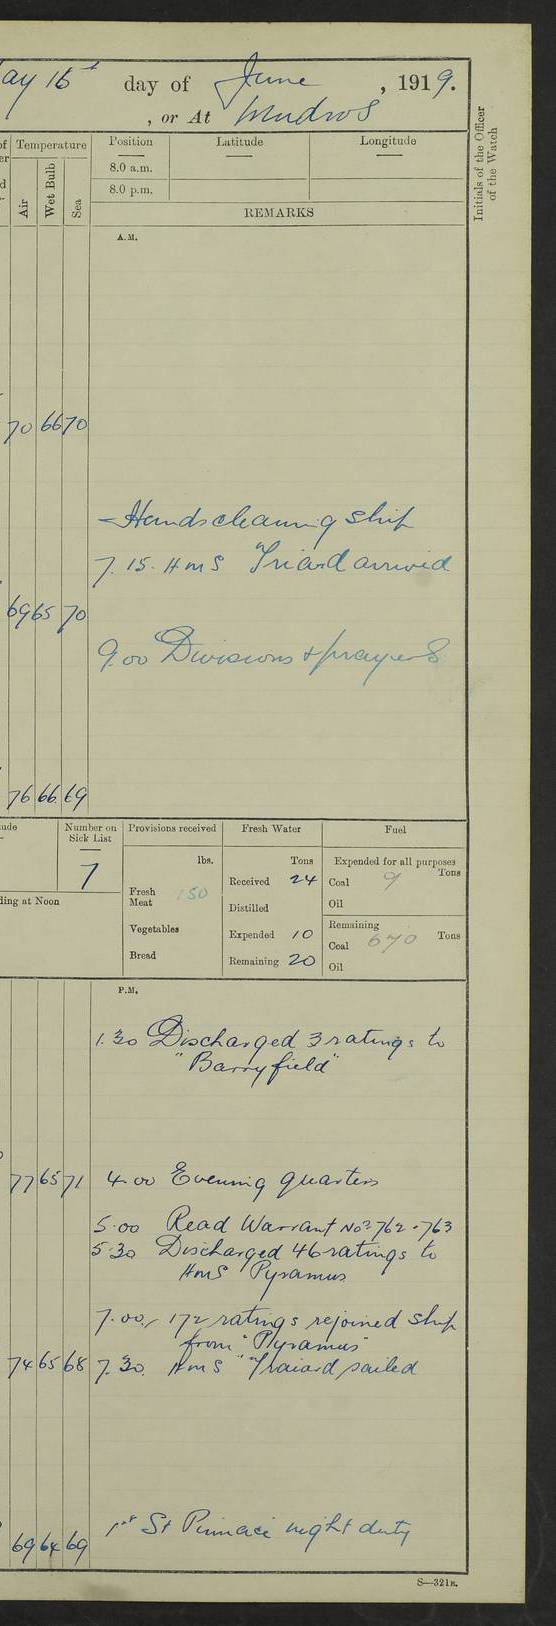 ay 16 day of June , 1919.
, or At Mudros
of Temperature Position Latitude Longitude
er
d Air Wet Bulb Sea
8.0 a.m.
8.0 p.m.
Initials of the Officer
of the Watch
REMARKS
A.M.
70 66 70
- Hands cleaning ship
7.15. HMS "Triard arrived
69 65 70
9.00 Divisions & prayers
76 66 69
ude Number on Sick List Provisions received Fresh Water Fuel
7
lbs. Tons Expended for all purposes
Fresh Meat 150 Received 24 Coal 9 Tons
ding at Noon Distilled Oil
Vegetables Expended 10 Remaining
Coal 670 Tons
Bread Remaining 20 Oil
P.M.
1.30 Discharged 3 ratings to
"Barryfield"
77 65 71 4.00 Evening quarters
5.00 Read Warrant Nos 762 - 763
5.30 Discharged 46 ratings to
HMS Pyramus
7.00 172 ratings rejoined ship
from "Pyramus"
74 65 68 7.30. HMS "Traiard sailed
1st St Pinnace night duty
69 64 69
S—321B.